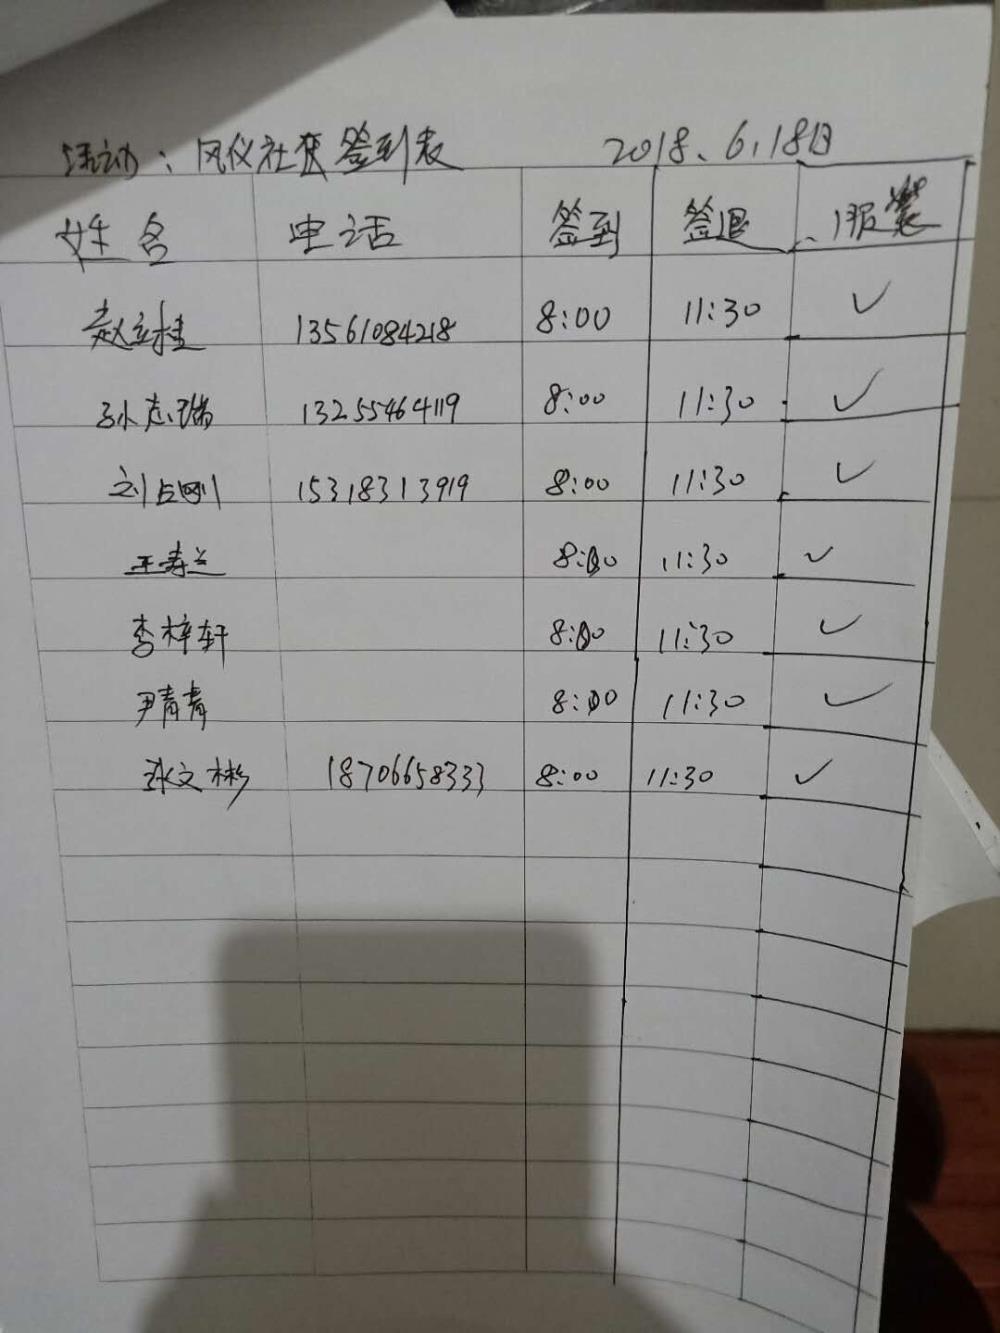 活动：凤仪社区签到表 2018.6.18日
姓名 电话 签到 签退 服装
赵立桂 13561084218 8:00 11:30 ✓
孙志瑞 13255464119 8:00 11:30 ✓
刘占刚 15318313919 8:00 11:30 ✓
王寿兰 8:00 11:30 ✓
李梓轩 8:00 11:30 ✓
尹青青 8:00 11:30 ✓
张文彬 18706658333 8:00 11:30 ✓